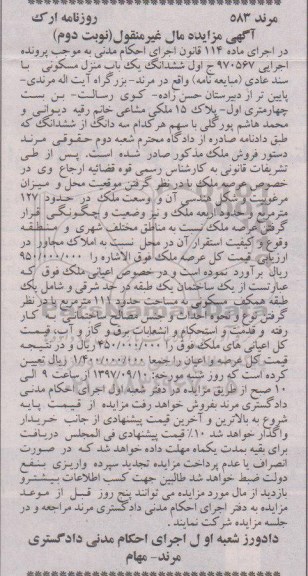 مرند ۵۸۳ روزنامه ارک
آگهی مزایده مال غیرمنقول(نوبت دوم)
در اجرای ماده ۱۱۴ قانون اجرای احکام مدنی به موجب پرونده
اجرایی ۹۷۰۵۶۷ ح اول ششدانگ یک باب منزل مسکونی با
سند عادی (مبایعه نامه) واقع در مرند- بزرگراه آیت اله مرندی-
پایین تر از دبیرستان حسن زاده- کوی رسالت- بن بست
چهارمتری اول- پلاک ۱۵ ملکی مشاعی خانم رقیه دیبائی و
محمد هاشم پورگلی با سهم هر کدام سه دانگ از ششدانگ که
طبق دادنامه صادره از دادگاه محترم شعبه دوم حقوقی مرند
دستور فروش ملک مذکور صادر شده است. پس از طی
تشریفات قانونی به کارشناس رسمی قوه قضائیه ارجاع وی در
خصوص عرصه ملک با در نظر گرفتن موقعیت محل و میزان
مرغوبیت و شکل هندسی آن و وسعت ملک در حدود ۱۲۷
مترمربع و حدود اربعه ملک و نیز وضعیت و چگونگی قرار
گرفتن عرصه ملک نسبت به مناطق مختلف شهری و منطقه
وقوع و کیفیت استقرار آن در محل نسبت به املاک مجاور در
ارزیابی قیمت کل عرصه ملک فوق الاشاره را ۹۵۰/۰۰۰/۰۰۰
ریال برآورد نموده است و در خصوص اعیانی ملک فوق که
عبارتست از یک ساختمان یک طبقه در حد شرقی و شامل یک
طبقه همکف مسکونی به مساحت حدود ۱۱۱ مترمربع با در نظر
گرفتن نوع سازه احداثی و نوع مصالح ساختمانی بکار
رفته و قدمت و استحکام و انشعابات برق و گاز و آب، قیمت
کل اعیانی های ملک فوق را ۴۵۰/۰۰۰/۰۰۰ ریال و در نتیجه
قیمت کل عرصه و اعیان را جمعا ۱/۴۰۰/۰۰۰/۰۰۰ ریال تعیین
کرده است که روز شنبه مورخه: ۱۳۹۷/۰۹/۱۰ از ساعت ۹ الی
۱۰ صبح از طریق مزایده در دفتر شعبه اول اجرای احکام مدنی
دادگستری مرند بفروش خواهد رفت مزایده از قیمت پایه
شروع به بالاترین و آخرین قیمت پیشنهادی از جانب خریدار
واگذار خواهد شد ۱۰٪ قیمت پیشنهادی فی المجلس دریافت
برای بقیه بمدت یکماه مهلت داده خواهد شد که در صورت
انصراف یا عدم پرداخت مزایده تجدید سپرده واریزی بنفع
دولت ضبط خواهد شد طالبین جهت کسب اطلاعات بیشتر و
بازدید از مال مورد مزایده می توانند پنج روز قبل از موعد
مزایده به دفتر اجرای احکام مدنی دادگستری مرند مراجعه و در
جلسه مزایده شرکت نمایند.
دادورز شعبه اول اجرای احکام مدنی دادگستری
مرند- مهام